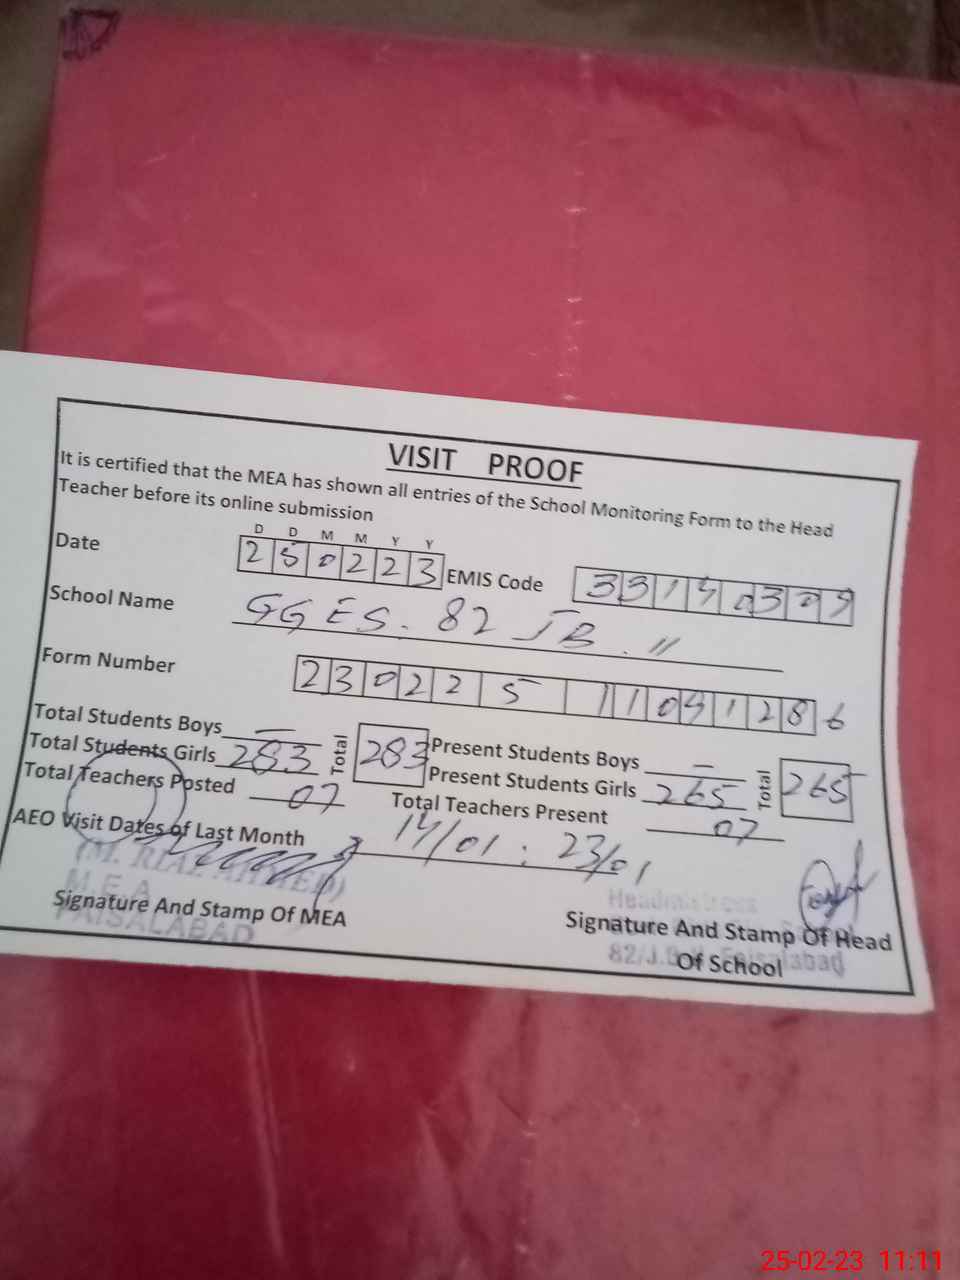 VISIT PROOF
It is certified that the MEA has shown all entries of the School Monitoring Form to the Head
Teacher before its online submission
D D M M Y Y
Date 250223 EMIS Code
School Name GGES. 82 JB. "
Form Number
Total Students Boys — Total 283 Present Students Boys — Total 265
Total Students Girls 283 Present Students Girls 265
Total Teachers Posted 07 Total Teachers Present 07
AEO Visit Dates of Last Month 14/01 : 23/01
(M. RIAZ AHMED)
M.E.A
FAISALABAD
Signature And Stamp Of MEA
Headmistress
82/J.B Faisalabad
Signature And Stamp Of Head
Of School
25-02-23 11:11